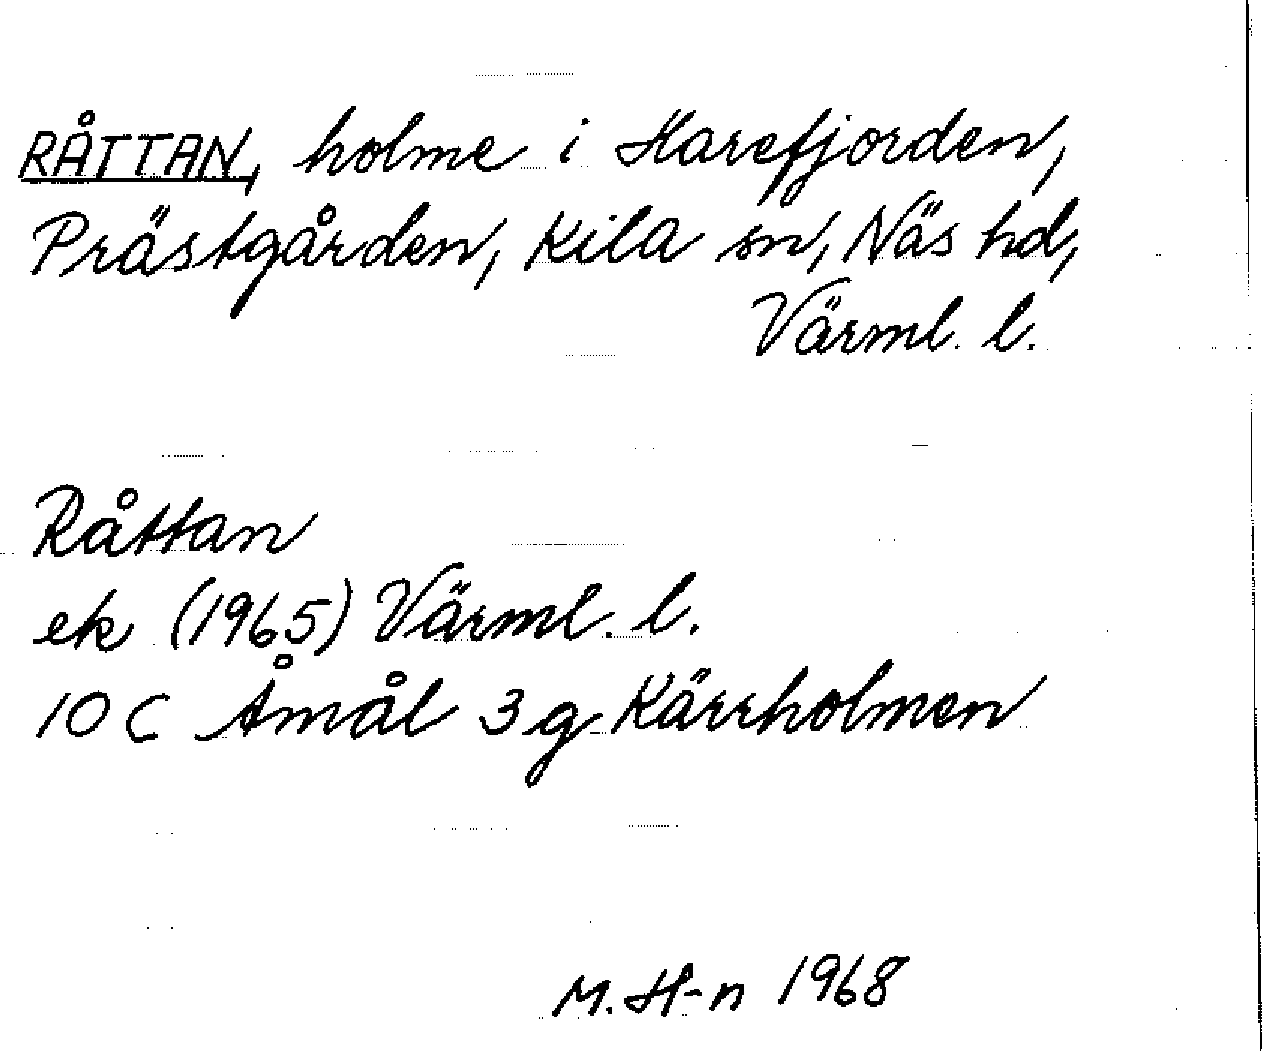 RÅTTAN, holme i Harefjorden,
Prästgården, Kila sn, Näs hd,
Värml. l.
Råttan
ek (1965) Värml. l.
10 C Åmål 3 g Kärrholmen
M. H-n 1968